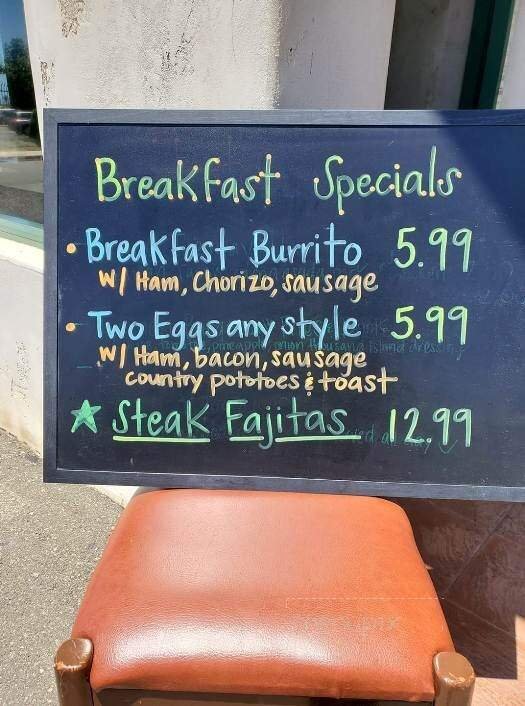 Breakfast Specials
• Breakfast Burrito 5.99
w/ Ham, Chorizo, sausage
• Two Eggs any style 5.99
w/ Ham, bacon, sausage
country pototoes & toast
★ Steak Fajitas 12.99